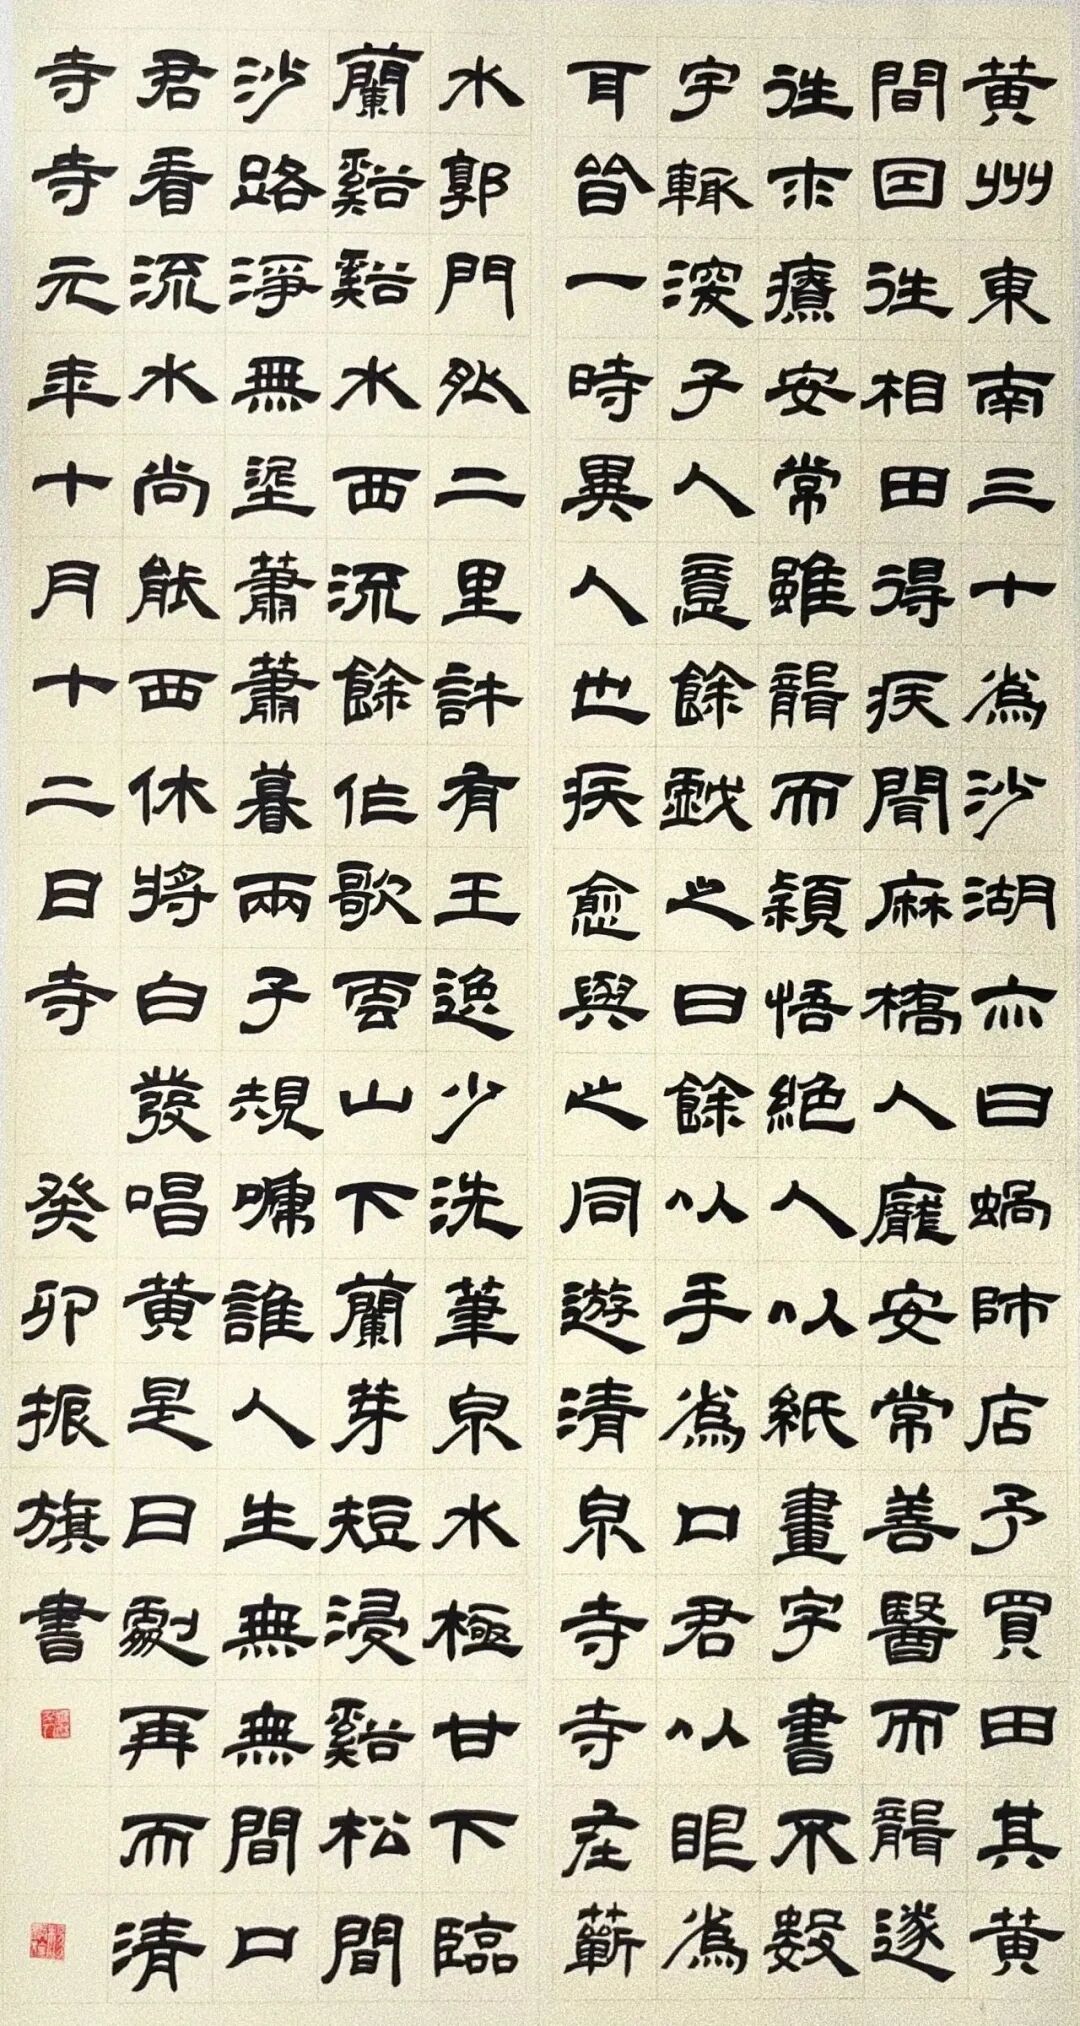 黄州東南三十爲沙湖亦曰蝸師店予買田其黄
間因往相田得疾聞麻橋人龐安常善醫而聾遂
往求療安常雖聾而穎悟絕人以紙畫字書不數
字輒深子人意餘戲之曰餘以手爲口君以眼爲
耳皆一時異人也疾愈與之同遊清泉寺寺在蘄
水郭門外二里許有王逸少洗筆泉水極甘下臨
蘭谿谿水西流餘作歌雲山下蘭芽短浸谿松間
沙路淨無塵蕭蕭暮兩子規啼誰人生無無間口
君看流水尚能西休將白發唱黄是日劇再而清
寺寺元年十月十二日寺 癸卯振旗書